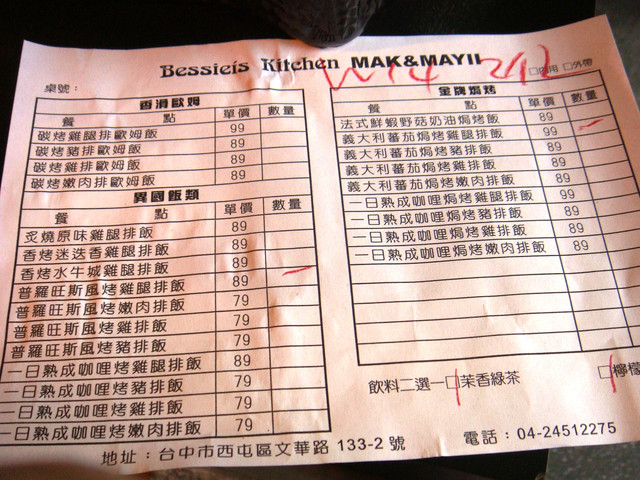 Bessieis Kitchen MAK&MAYII
桌號：
內用 □外帶
香滑歐姆
餐 點 單價 數量
碳烤雞腿排歐姆飯 99
碳烤豬排歐姆飯 89
碳烤雞排歐姆飯 89
碳烤嫩肉排歐姆飯 89
異國飯類
餐 點 單價 數量
炙燒原味雞腿排飯 89
香烤迷迭香雞腿排飯 89
香烤水牛城雞腿排飯 89
普羅旺斯風烤雞腿排飯 89
普羅旺斯風烤嫩肉排飯 79
普羅旺斯風烤雞排飯 79
普羅旺斯風烤豬排飯 79
一日熟成咖哩烤雞腿排飯 89
一日熟成咖哩烤豬排飯 79
一日熟成咖哩烤雞排飯 79
一日熟成咖哩烤嫩肉排飯 79
餐 點 單價 數量
法式鮮蝦野菇奶油焗烤飯 89
義大利蕃茄焗烤雞腿排飯 99
義大利蕃茄焗烤豬排飯 89
義大利蕃茄焗烤雞排飯 89
義大利蕃茄焗烤嫩肉排飯 89
一日熟成咖哩焗烤雞腿排飯 99
一日熟成咖哩焗烤豬排飯 89
一日熟成咖哩焗烤雞排飯 89
一日熟成咖哩焗烤嫩肉排飯 89
飲料二選一□茉香綠茶 □檸檬
地址：台中市西屯區文華路 133-2 號 電話：04-24512275